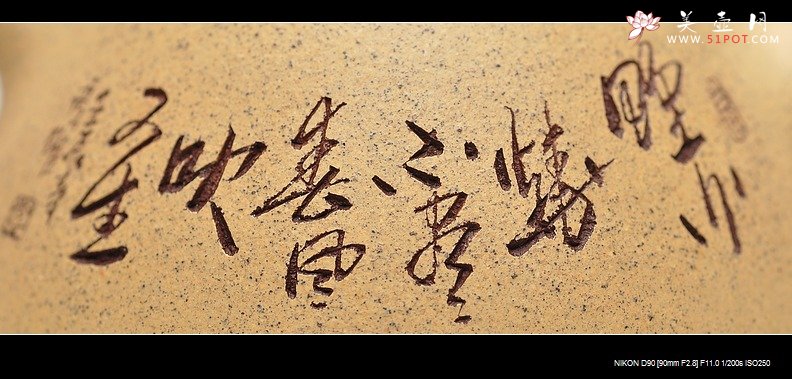 野火
燒
不尽
春风
吹
又生
美壶网
WWW.51POT.COM
NIKON D90 [90mm F2.8] F11.0 1/200s ISO250